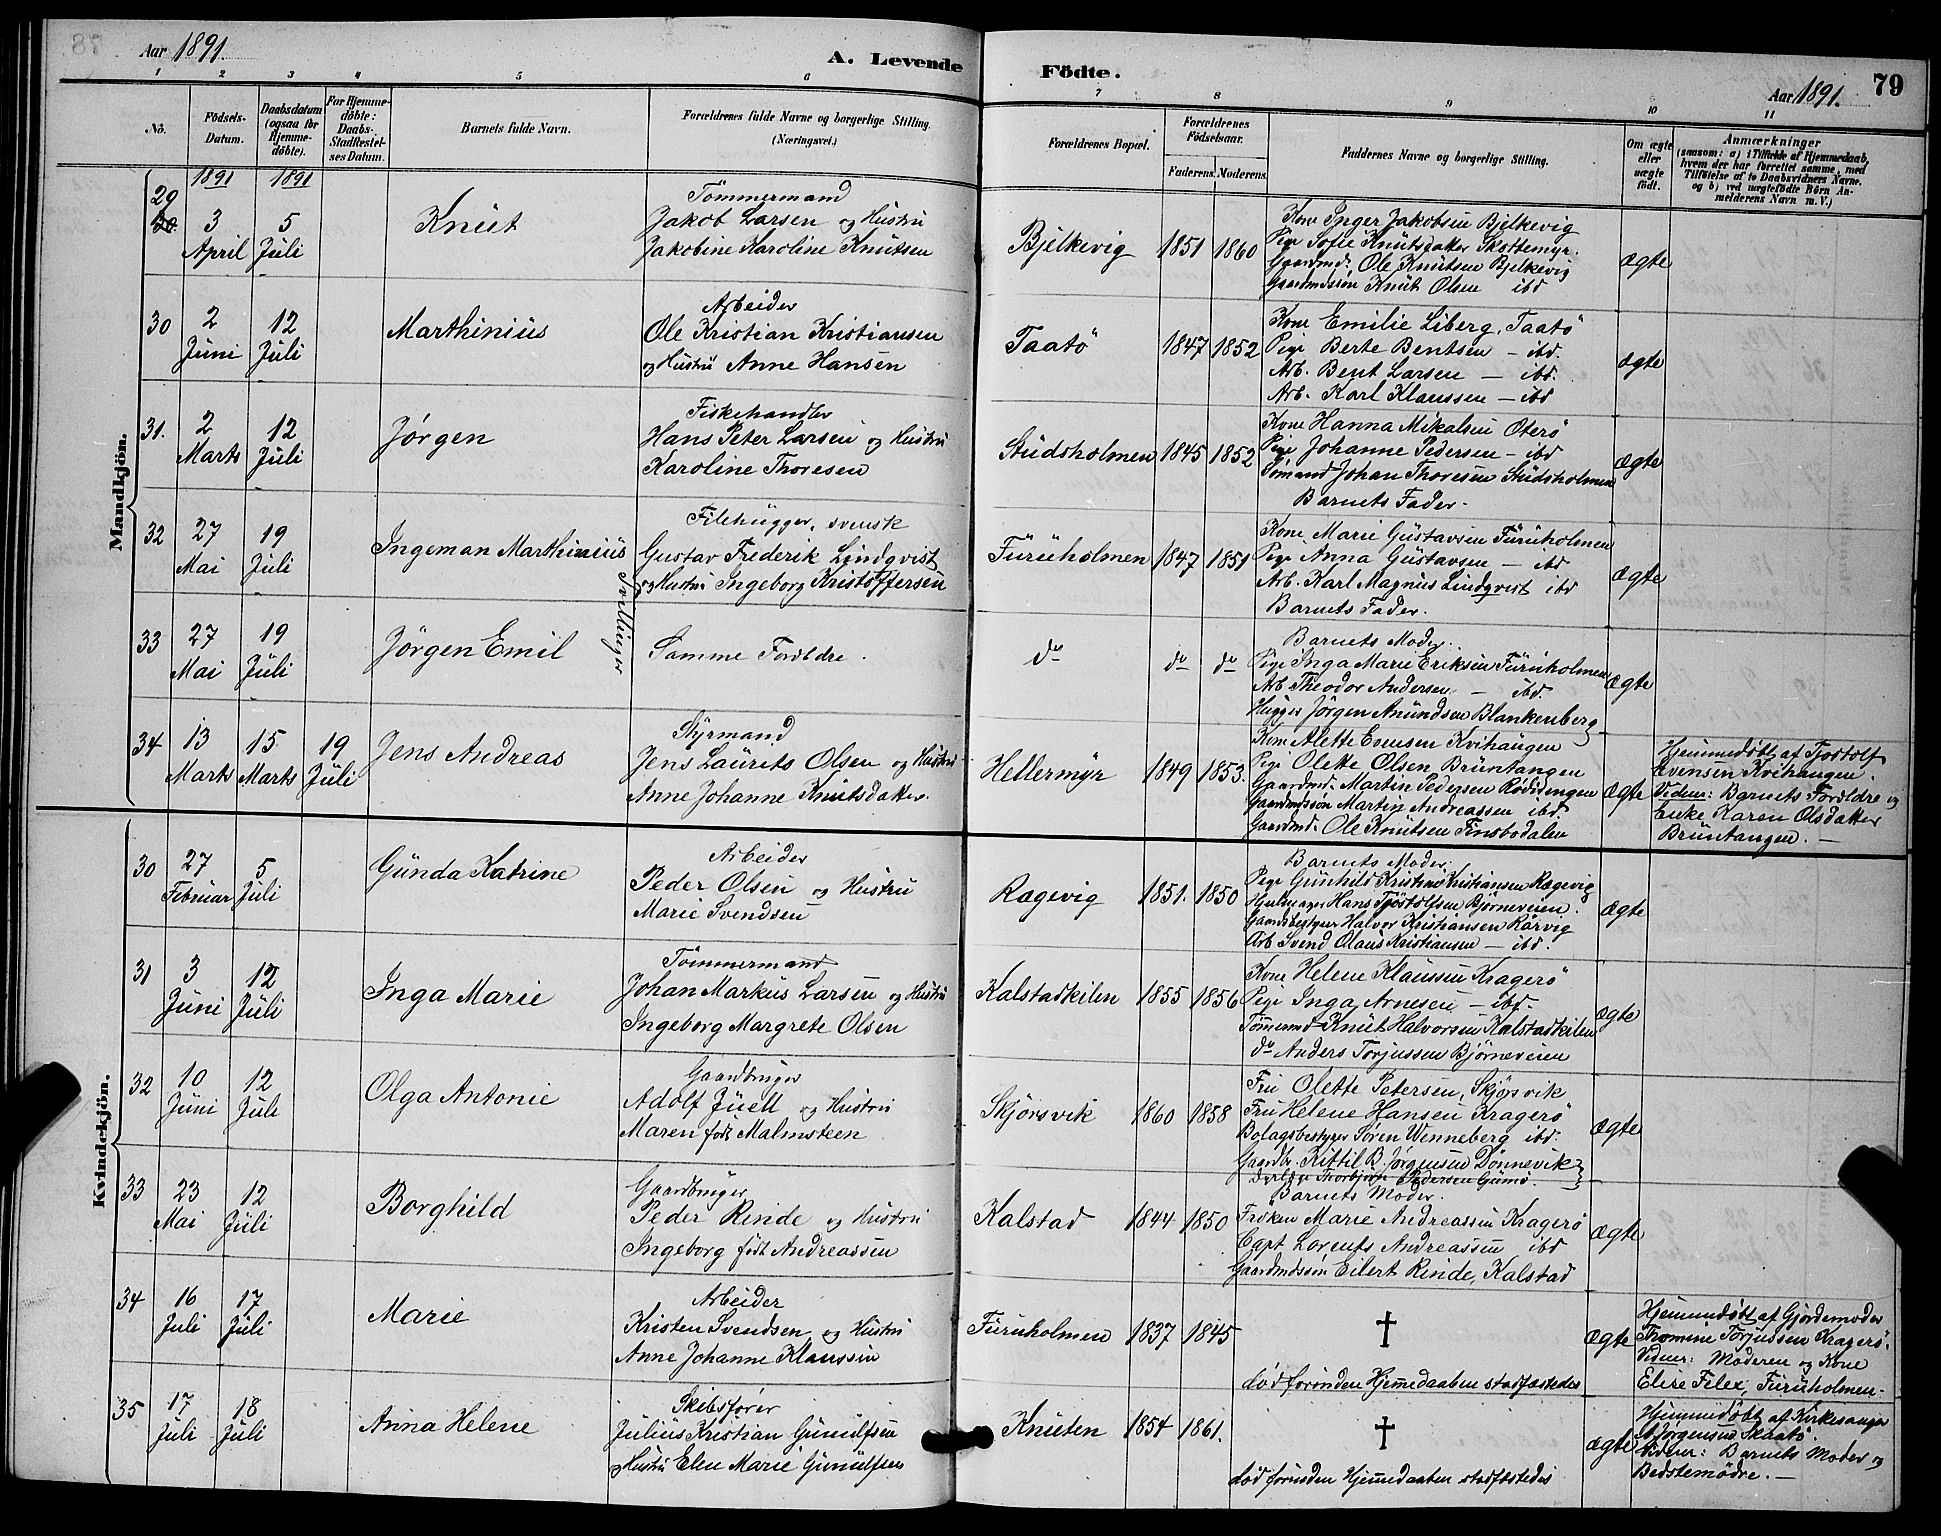 78
Aar 1891.
A. Levende Födte.
Aar 1891.
79
1 2 3 4 5 6 7 8 9 10 11
No.
Födsels-Datum.
Daabsdatum (ogsaa for Hjemme-döbte).
For Hjemme-döbte: Daabs-Stadfæstel-ses Datum.
Barnets fulde Navn.
Forældrenes fulde Navne og borgerlige Stilling. (Næringsvei.)
Forældrenes Bopæl.
Forældrenes Födselsaar. Faderens. Moderens.
Faddernes Navne og borgerlige Stilling.
Om ægte eller uægte födt.
Anmærkninger (saasom: a) i Tilfælde af Hjemmedaab, hvem der har forrettet samme, med Tilföielse af to Daabsvidners Navne. og b) ved uægtefödte Börn An-melderens Navn m. V.)
Mandkjön.
1891 1891
29
30.
3 April
5 Juli
Knut
Tömmermand
Jakob Larsen og Hustru
Jakobine Karoline Knutsen
Bjelkevig 1851 1860
Kone Inger Jakobsen Bjelkevig
Pige Sofie Knutsdatter Skottemyr.
Gaardmd. Ole Knutsen Bjelkevig
Gaardmdssön Knut Olsen ibd
ægte
30
2 Juni
12 Juli
Marthinius
Arbeider
Ole Kristian Kristiansen
og Hustru Anne Hansen
Taatö 1847 1852
Kone Emilie Liberg, Taatö
Pige Berte Bentsen - ibd.
Arb. Bent Larsen - ibd.
Arb. Karl Klaussen - ibd
ægte
31.
2 Marts
12 Juli
Jörgen
Fiskehandler
Hans Peter Larsen og Hustru
Karoline Thoresen
Studsholmen 1845 1852
Kone Hanna Mikalsen Oterö
Pige Johanne Pedersen - ibd
Sömand Johan Thoresen Studsholmen
Barnets Fader.
ægte
32
27 Mai
19 Juli
Ingeman Marthinius
Tvillinger
Filehugger, svensk
Gustav Frederik Lindqvist
og Hustru Ingeborg Kristoffersen
Furuholmen 1847 1851
Kone Marie Gustavsen Furuholmen
Pige Anna Gustavsen - ibd
Arb. Karl Magnus Lindqvist ibd
Barnets Fader.
ægte
33
27 Mai
19 Juli
Jörgen Emil
Samme Foreldre.
do do do
Barnets Moder.
Pige Inga Marie Eriksen Furuholmen
Arb Theodor Andersen - ibd.
Hugger Jörgen Amundsen Blankenberg
ægte
34
13 Marts
15 Marts
19 Juli
Jens Andreas
Styrmand
Jens Laurits Olsen og Hustru
Anne Johanne Knutsdatter.
Hellermyr 1849 1853.
Kone Alette Evensen Kvihaugen
Pige Olette Olsen Bruntangen
Gaardmd. Martin Pedersen Rödsengen
Gaardmdssön Martin Andreassen ibd
Gaardmd. Ole Knutsen Finsbodalen
ægte
Hjemmedöbt af Tjostolf
Evensen Kvihaugen.
Vidner: Barnets Foreldre og
Enke Karen Olsdatter
Bruntangen. -
Kvindekjön.
30
27 Februar
5 Juli
Gunda Katrine
Arbeider
Peder Olsen og Hustru
Marie Svendsen
Ragevig 1851. 1850
Barnets Moder.
Pige Gunhild Kristine Kristiansen Ragevig
Hjulmager Hans Tjostolfsen Björneveien.
Gaardsbestyrer Halvor Kristiansen Rörvig
Arb Svend Olaus Kristiansen - ibd.
ægte
31
3 Juni
12 Juli
Inga Marie
Tömmermand
Johan Markus Larsen og Hustru
Ingeborg Margrete Olsen
Kalstadkilen 1855 1856
Kone Helene Klaussen Kragerö
Pige Inga Arnesen - ibd.
Tömmermd Knut Halvorsen Kalstadkilen
do Anders Torjussen Björneveien
ægte
32
10 Juni
12 Juli
Olga Antonie
Gaardbruger
Adolf Juell og Hustru
Maren födt Malmsteen
Skjörsvik 1860 1858
Fru Olette Petersen, Skjörsvik
Fru Helene Hansen Kragerö
Bolagsbestyrer Sören Wenneberg ibd.
Gaardbr. Kittil B. Jörgensen Dönnevik
Thorbjörn Pedersen Gumö.
ægte
33
23 Mai
12 Juli
Borghild
Gaardbruger
Peder Rinde og Hustru
Ingeborg födt Andreassen
Kalstad 1844 1850
Barnets Moder.
Fröken Marie Andreassen Kragerö
Capt Lorents Andreassen ibd
Gaardmdssön Eilert Rinde, Kalstad
ægte
34
16 Juli
17 Juli
Marie
Arbeider
Kristen Svendsen og Hustru
Anne Johanne Klaussen
Furuholmen 1837 1845
†
död forinden Hjemmedaaben stadfæstedes
ægte
Hjemmedöbt af Gjordemoder
Tromine Torjussen Kragerö.
Vidner: Moderen og Kone
Elise Filex, Furuholmen.
35
17 Juli
18 Juli
Anna Helene
Skibsförer
Julius Kristian Gunulfsen
og Hustru Elen Marie Gunulfsen
Knuten 1854 1861.
†
död forinden Hjemmedaaben stadfæstedes
ægte
Hjemmedöbt af Kirkesanger
Jörgensen Skaatö.
Vidner: Barnets Moder og
Bedstemödre. -